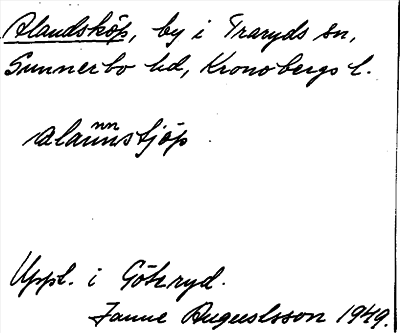 Alandsköp, by i Traryds sn,
Sunnerbo hd, Kronobergs l.
alannstjöp
Uppl. i Göteryd.
Janne Augustsson 1949.